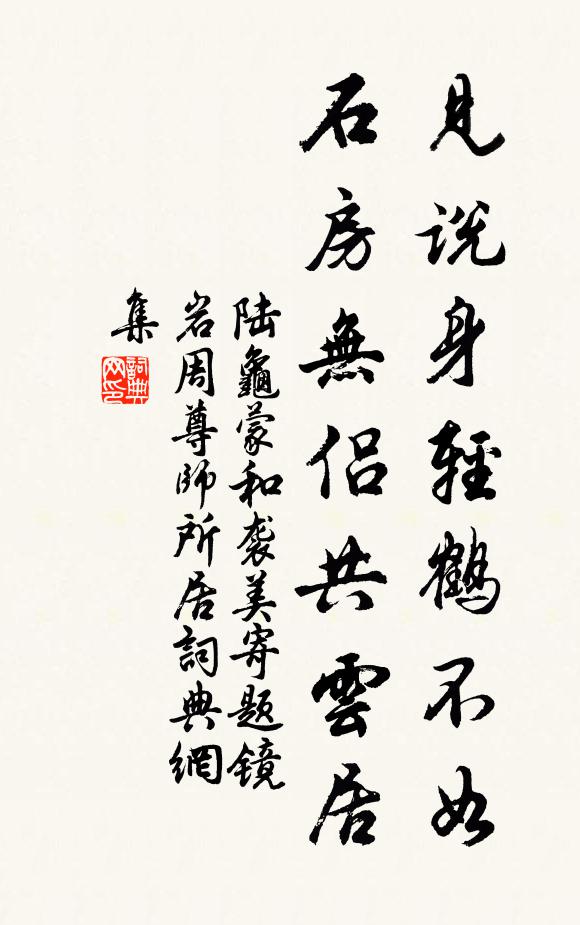 見説身輕鶴不如
石房無侶共雲居
陆龜蒙和袭美寄题镜
岩周尊師所居詞典網
集
詞典
网印